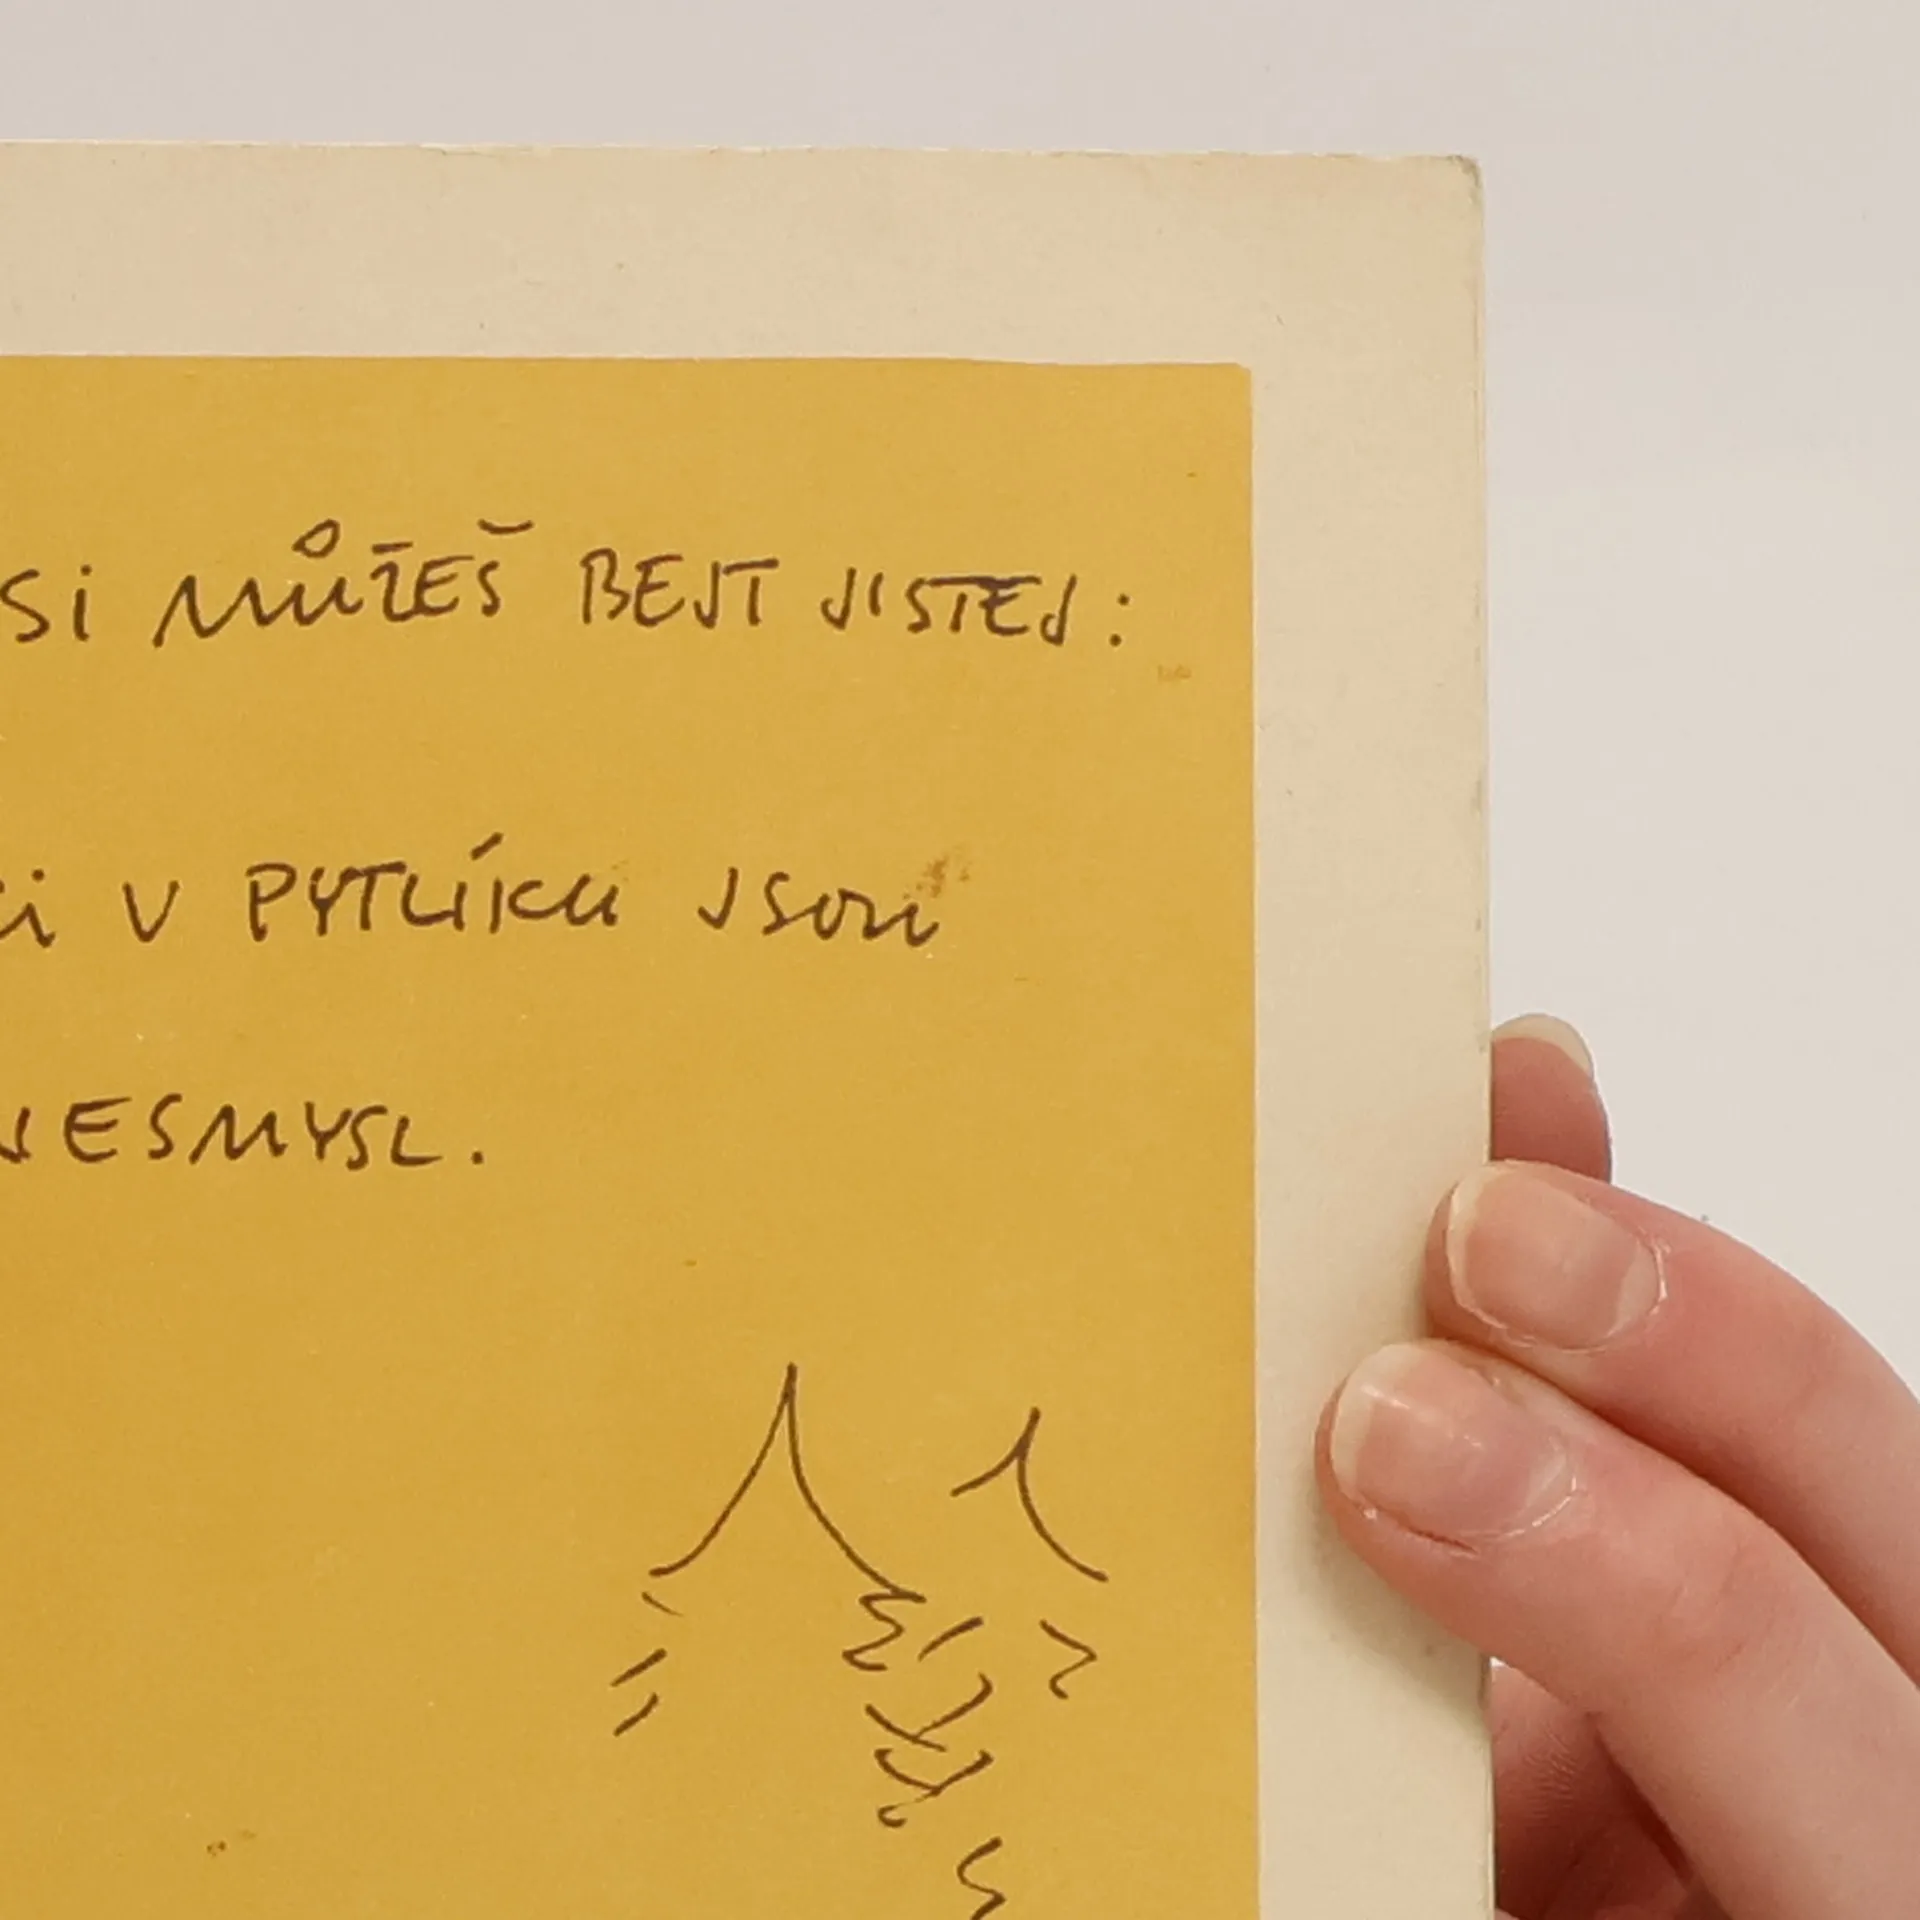 SI MŮŽEŠ BEJT JISTEJ:
V PYTLÍKU JSOU
NESMYSL.